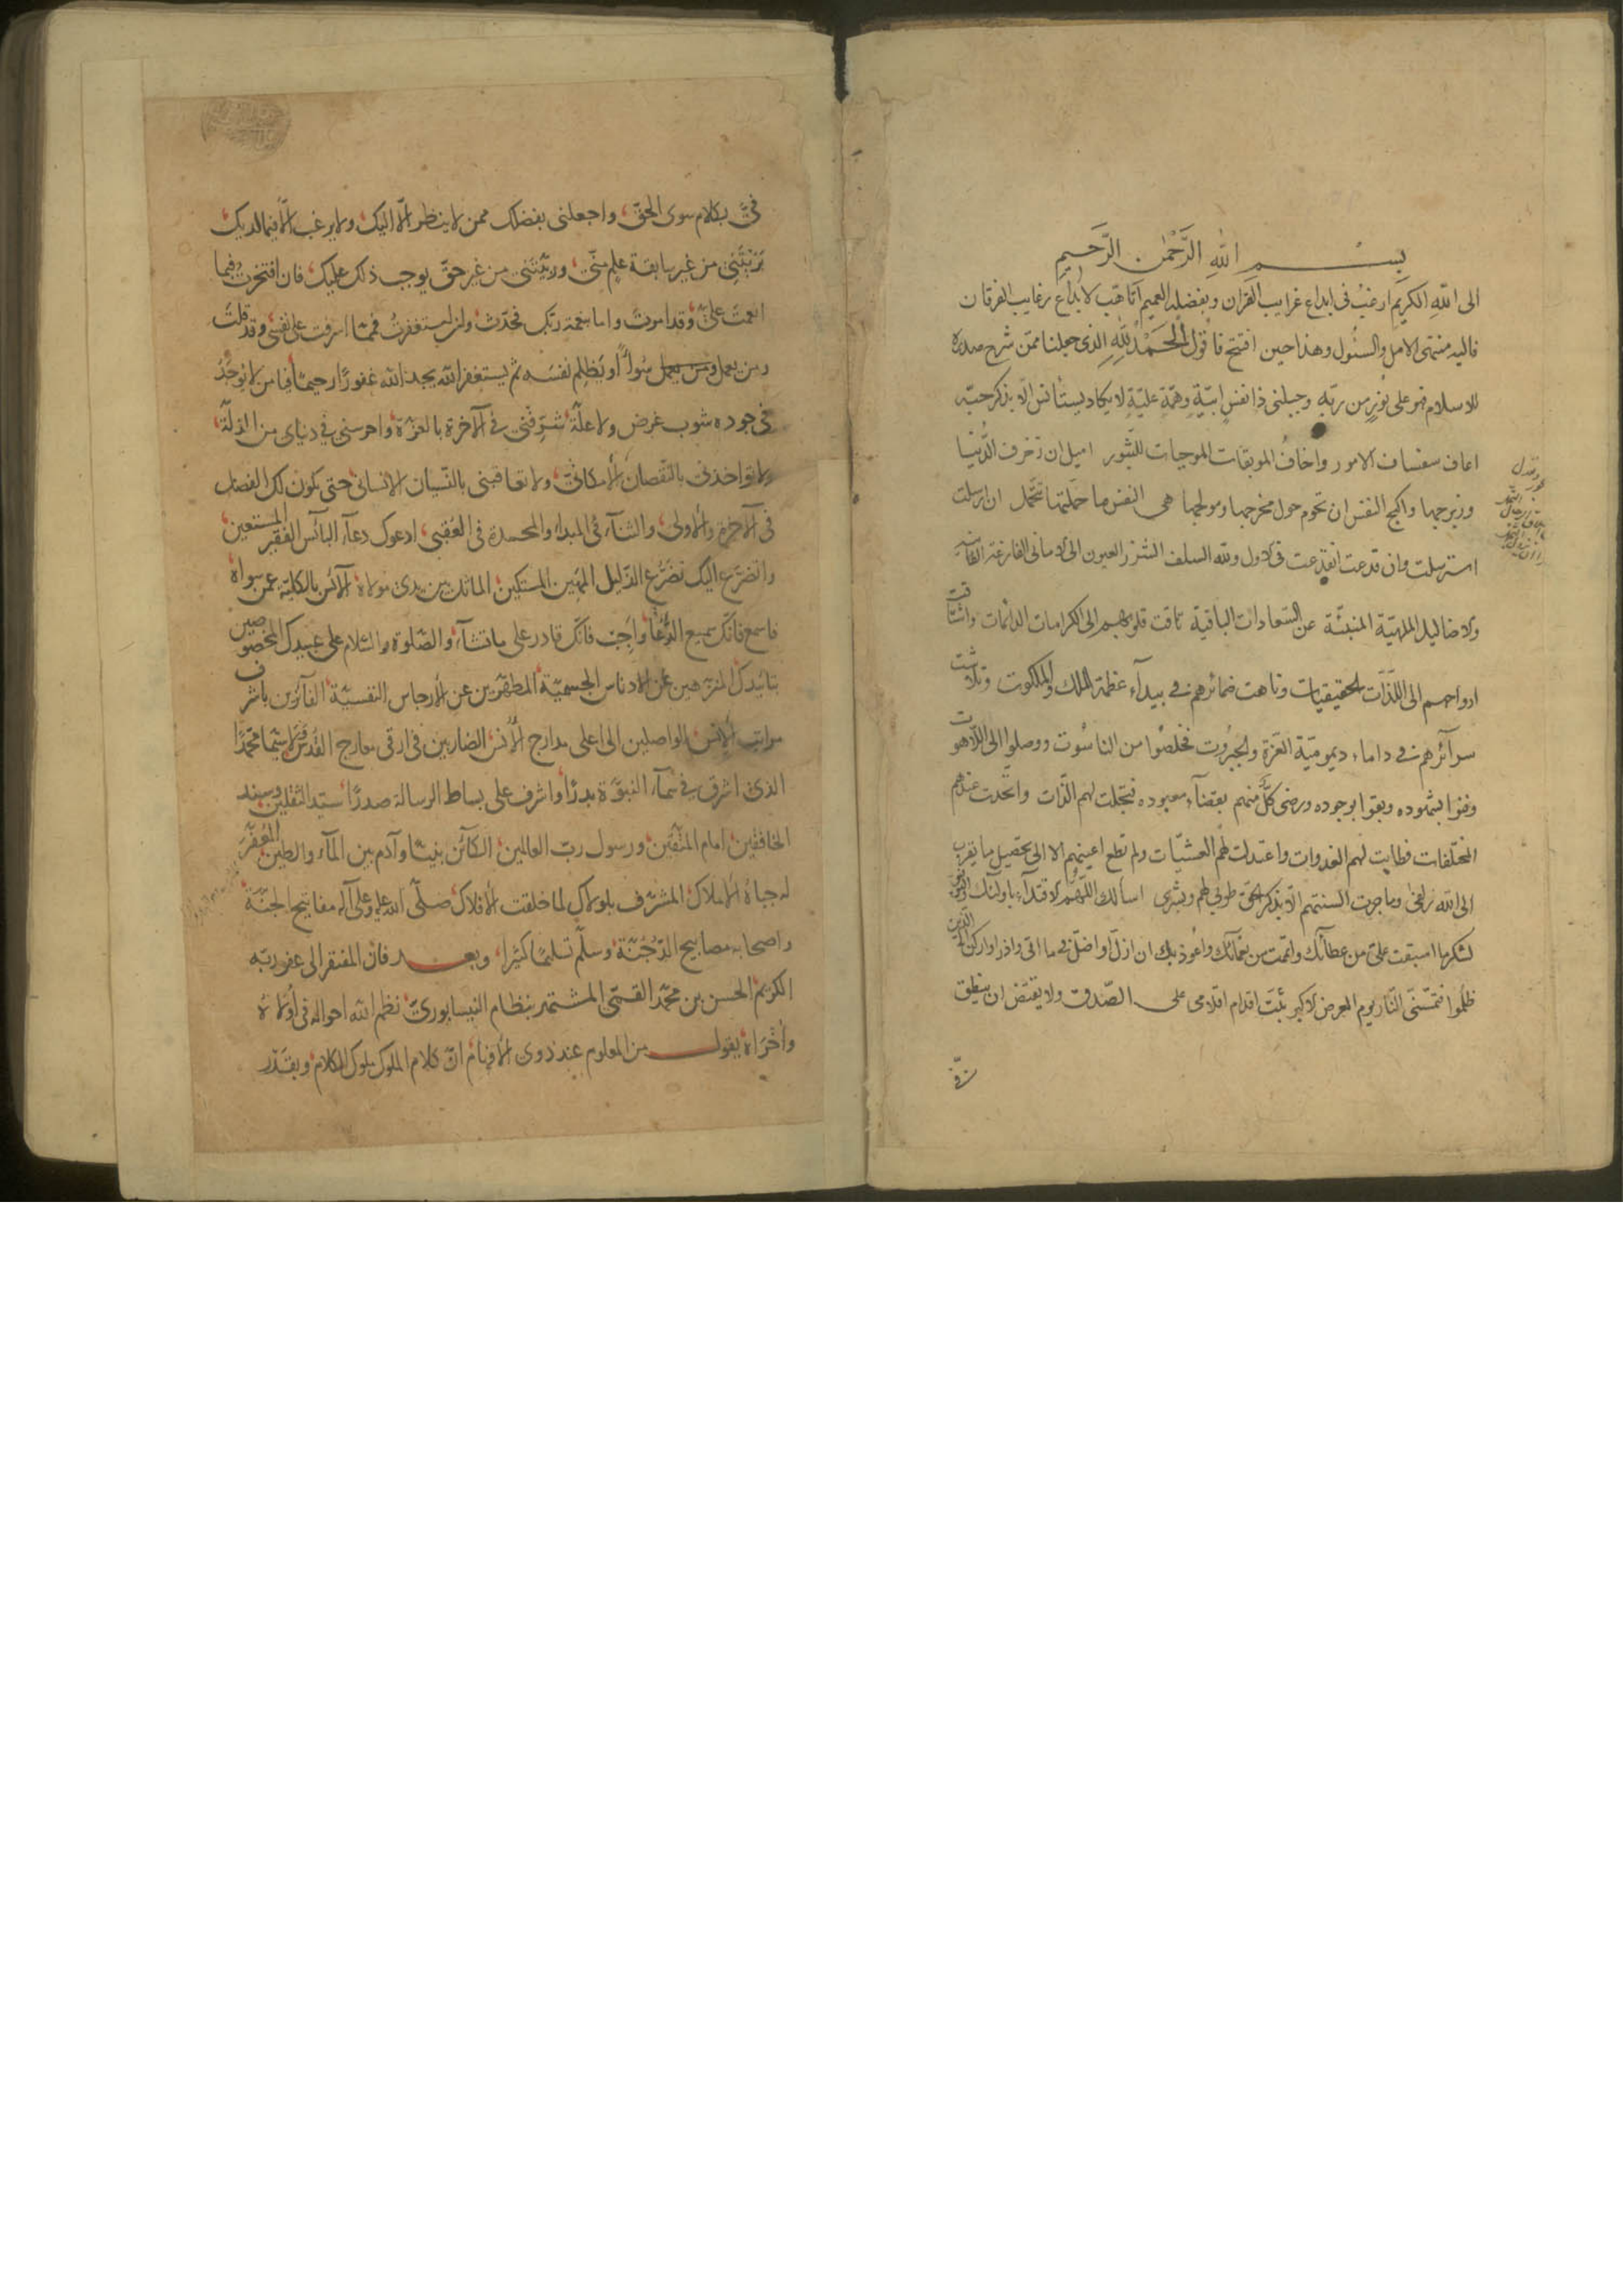 بسم الله الرَّحْمٰن الرَّحيم
الى اللهِ الكريم ارغبُ فى ابداع غرايب القرآن وبفضله العميم اتاهّب لابداع رغايب الفرقان
فاليه منتهى الامل والسئول وهذا حين افتتح فاقول الحَمْدُ للهِ الذى جعلنا ممّن شرح صدره
للاسلام فهو على نُورٍ من ربّه وجبلنى ذا نفسٍ ابيّةٍ وهمّةٍ عليّةٍ لا يكاد يستأنس الّا بذكر حبّه
اعاف سفساف الامور واخافُ الموبقات الموجبات للثّبور اميل ان زخرف الدُّنيا
وزبرجها واكبح النفس ان تحوم حول مخرجها ومولجها هى النفس ما حمّلتها تتحمّل ان ارسلت
استرسلت وان قدعت انقدعت فى الاول ولله السلف الشزر العيون الى الامانى الفارغة الفانية
والاضاليل الملهيّة المنبئة عن السّعادات الباقية تاقت قلوبهم الى الكرامات الدائمات واشتاقت
ارواحهم الى اللذّات الحقيقيات وتاهت ضمائرهم فى بيدآء عظمة الملك والملكوت وتلاشت
سرآئرهم فى داماء ديموميّة العزّة والجبرُوت فخلصُوا من الناسُوت ووصلوا الى اللّاهوت
وفنوا بشهوده وبقوا بوجوده ورضى كلٌّ منهم بقضآء معبوده فتجلت لهم الذّات واتّحدت عندهم
المختلفات فطابت لهم الغدوات واعتدلت لهم العشيّات ولم تطمع اعينهم الا الى تحصيل ما يقرب
الى الله زلفى وما جرت السنتهم الّا بذكر الحقّ طوبى لهم وبشرى اسألك اللّهُمّ الاقتدآء باولئك والتوفيق
لشكر ما اسبقت علىّ من عطائك واتممت من نعمائك واعُوذ بك ان ازلّ او اضلّ فى ما اتى واذر او اركن الى الّذين
ظلموا فتمسّنى النّار يوم العرض الاكبر ثبّت اقدام اقلامى على الصّدق ولا يقيّض ان ينطق
فىَّ بكلام سوى الحقّ واجعلنى بفضلك ممن لا ينظر الّا اليك ولا يرغب الّا فيما لديك
رَبَّيْتَنِى من غير سابقة علمٍ منّى وربّيتنى من غير حقّ يوجب ذلك عليك فان افتخرت فبما
انعمتَ علىّ وقد امرتَ واما بنعمة ربّك فحدّث ولئن استغفرتُ فممّا اسرفت على نفسى وقد قلتَ
ومن يعمل سُوأً او يَظلم نفسَه ثم يستغفر الله يجد الله غفورًا رحيمًا فيا من لا يوجَدُ
فى جوده شوب غرض ولا علّة شرّفنى فى الآخرة بالعزّة واحرسنى فى دنياى من الزلّة
ولا تؤاخذنى بالنّقصان الأمكانىّ ولا تعاقبنى بالنّسيان الانسانىّ حتى يكون لك الفضل
فى الآخرة والأولى والثنآء فى المبداء والمحمدة فى العُقبى ادعوك دعآء البائس الفقير المستعين
واتضرّع اليك تضرُّع الذّليل المَهين المسْتكين الماثل بين يدى مولاه الآئس بالكليّة عمن سواه
فاسمع فانّك سميع الدُّعآ واَجِب فانّك قادر على ما تشآء والصّلوة والسّلام على عبيدك المخصوصين
بتائيدك المنزهين عن الادناس الجسميّة المطهّرين عن الأرجاس النفسيّة الفآئزين باشرف
مراتب الإنس الواصلين الى اعلى مدارج الأنس الضاربين فى ارقى معارج القُدْس لا سيّما محمّدًا
الذى اشرق فى سمآء النبوّة بدرًا واشرف على بساط الرسالة صدرًا سيّد الثقلين وسند
الخافقين امام المتّقين ورسول ربّ العالمين الكآئن نبيًّا وآدم بين المآء والطين المُعفّر
له جباه الأملاك المشرّف بلولاك لما خلقت الأفلاك صلّى الله عليه وعلى آله مفاتيح الجنّة
واصحابه مصابيح الدُّجُنّة وسلّم تسليمًا كثيرا وبعد فان المفتقر الى عفو ربّه
الكريم الحسن بن محمّد القمّى المشتهر بنظام النيسابورىّ نظم الله احواله فى أُولاهُ
وأُخْرَاهُ يقول من المعلوم عند ذوى الأفهام انّ كلام الملوك ملوك الكلام وبقَدْر